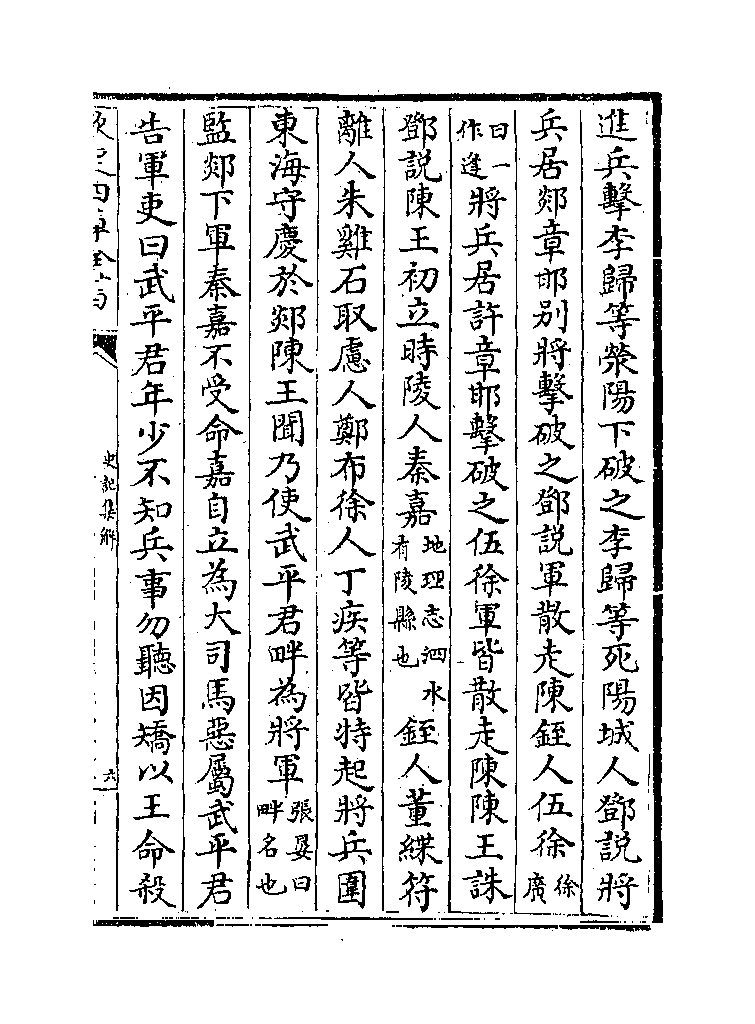 進兵擊李歸等滎陽下破之李歸等死陽城人鄧説將
兵居郯章邯别將擊破之鄧説軍散走陳銍人伍徐徐廣
曰一作逢將兵居許章邯擊破之伍徐軍皆散走陳陳王誅
鄧説陳王初立時陵人秦嘉地理志泗水有陵縣也銍人董緤符
離人朱雞石取慮人鄭布徐人丁疾等皆特起將兵圍
東海守慶於郯陳王聞乃使武平君畔為將軍張晏曰畔名也
監郯下軍秦嘉不受命嘉自立為大司馬惡屬武平君
告軍吏曰武平君年少不知兵事勿聽因矯以王命殺
欽定四庫全書
史記集解
六